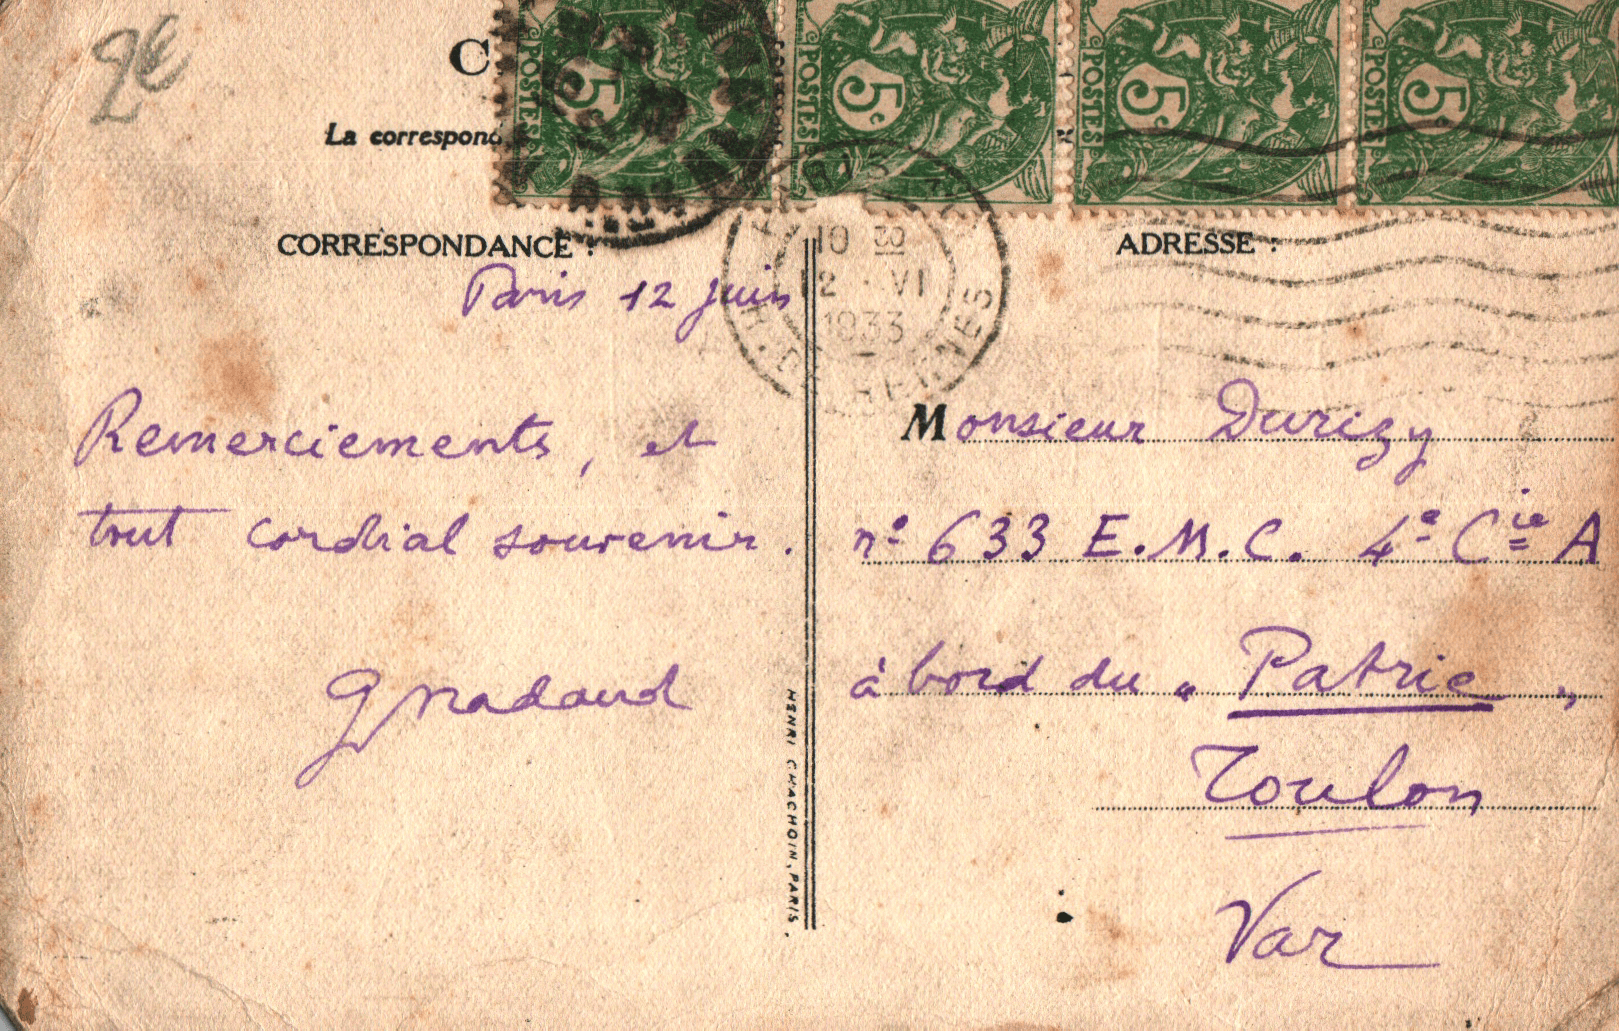 2€
C
La correspond
POSTES 5c
POSTES 5c
POSTES 5c
POSTES 5c
CORRESPONDANCE :
ADRESSE :
10 30
12 · VI
1933
Paris 12 juin
Remerciements, et
tout cordial souvenir.
GNadaud
Monsieur Durizy
n° 633 E.M.C. 4e Cie A
à bord du " Patrie "
Toulon
Var
HENRI CHACHOIN, PARIS.